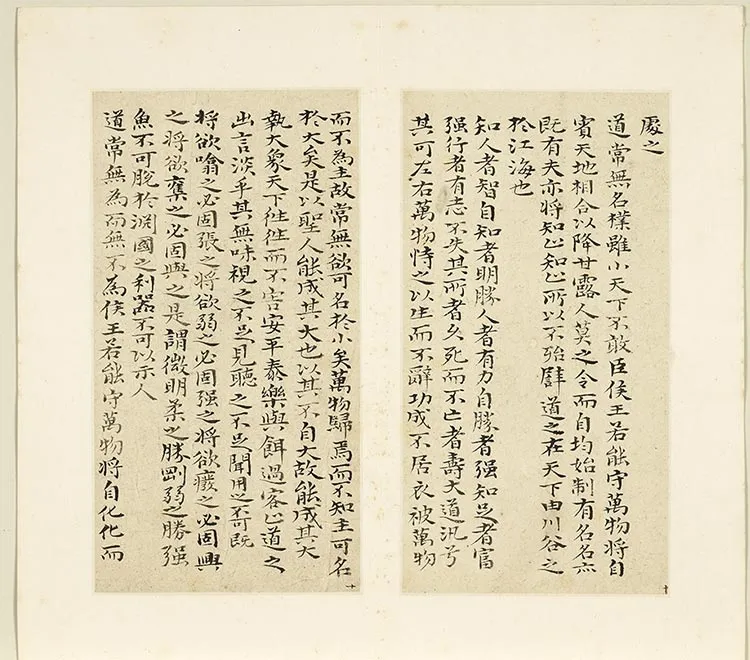 處之
道常無名樸雖小天下不敢臣侯王若能守萬物將自
賓天地相合以降甘露人莫之令而自均始制有名名亦
既有夫亦將知止知止所以不殆譬道之在天下由川谷之
於江海也
知人者智自知者明勝人者有力自勝者强知足者富
强行者有志不失其所者久死而不亡者壽大道汎兮
其可左右萬物恃之以生而不辭功成不居衣被萬物
十
而不為主故常無欲可名於小矣萬物歸焉而不知主可名
於大矣是以聖人能成其大也以其不自大故能成其大
執大象天下往往而不害安平泰樂與餌過客止道之
出言淡乎其無味視之不足見聽之不足聞用之不可既
將欲噏之必固張之將欲弱之必固强之將欲廢之必固興
之將欲奪之必固與之是謂微明柔之勝剛弱之勝强
魚不可脫於淵國之利器不可以示人
道常無為而無不為侯王若能守萬物將自化化而
十